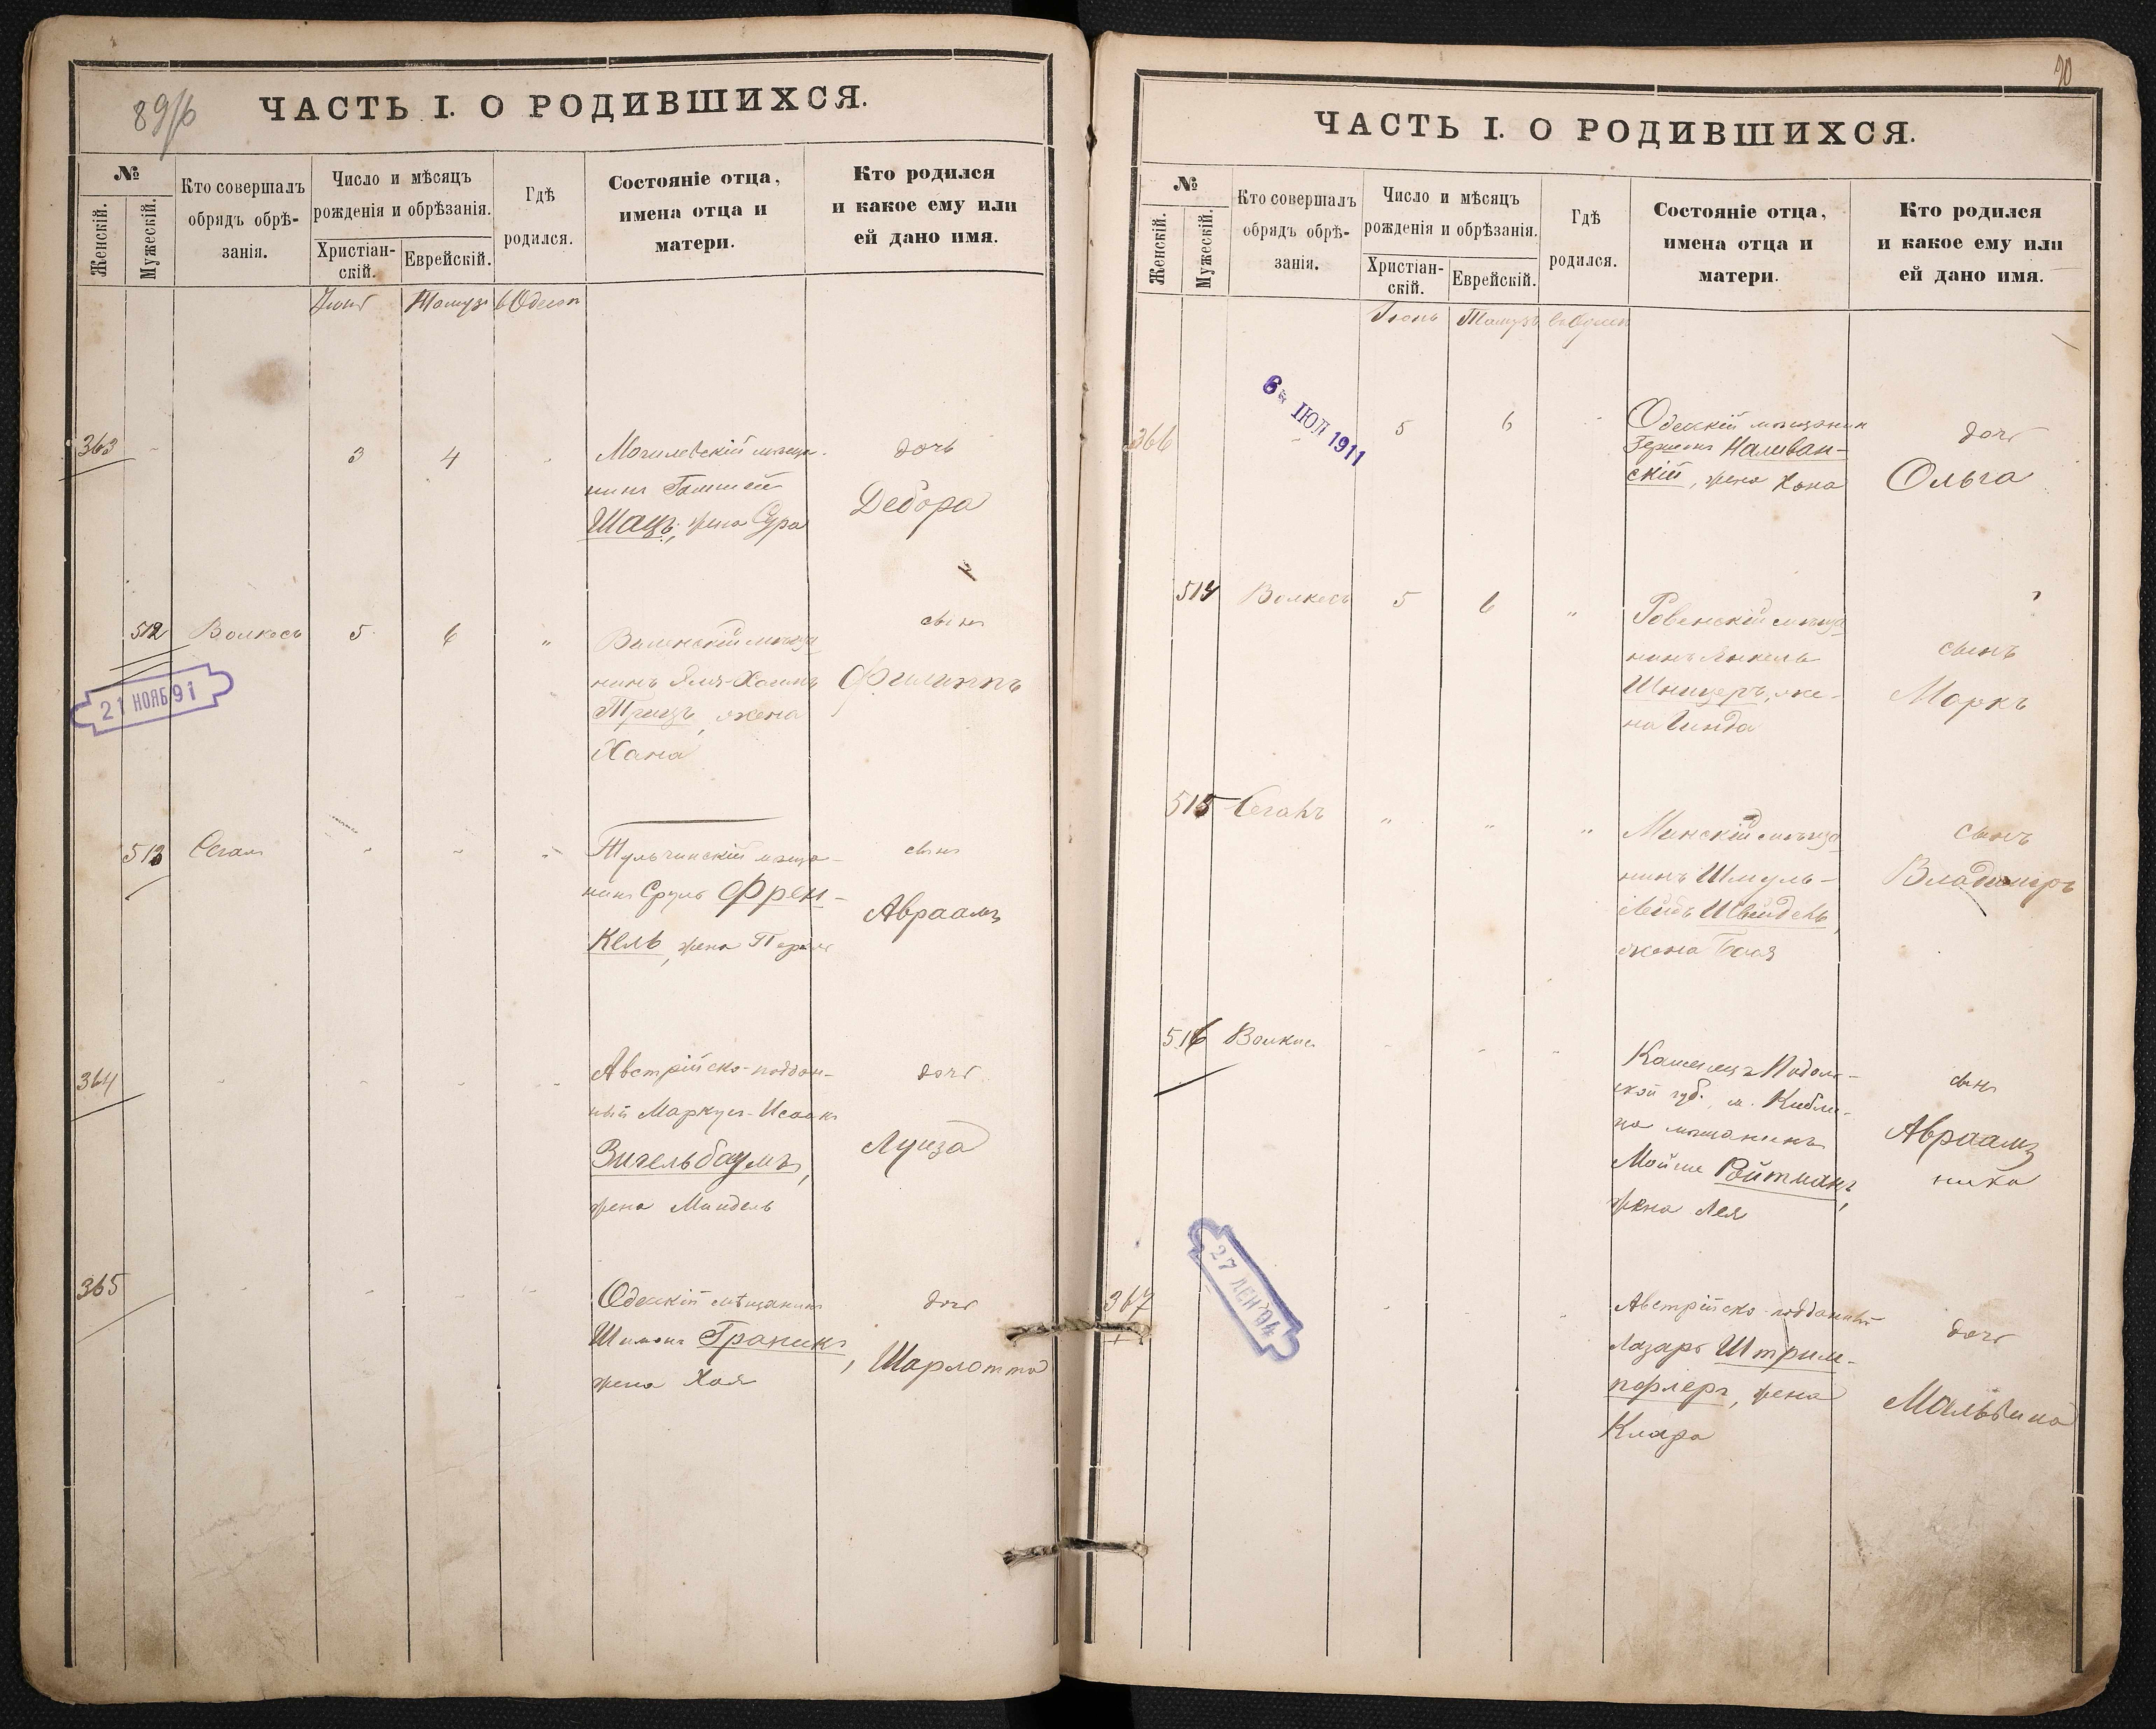 ЧАСТЬ I. О РОДИВШИХСЯ.
№
Женскій.
Мужескій.
Кто совершалъ
обрядъ обрѣ-
занія.
Число и мѣсяцъ
рожденія и обрѣзанія.
Христіан-
скій.
Еврейскій.
Гдѣ
родился.
Состояніе отца,
имена отца и
матери.
Кто родился
и какое ему или
ей дано имя.
363
3
4
Могилевскій мѣща-
нинъ
Шацъ, жена Сура
дочь
Дебора
512
Волкесъ
5
6
"
Виленскій мѣща
нинъ
Трицъ, жена
Хана
сынъ
Филиппъ
21 НОЯБ 91
513
Сегалъ
Тульчинскій мѣща-
нинъ Сруль Френ-
кель, жена
сынъ
Авраамъ
364
Австрійско-поддан-
ный Маркусъ-Исаакъ
Зигельбаумъ,
жена Миндель
дочь
Луиза
365
Одесскій мѣщанинъ
Шимонъ Граникъ,
жена Хая
дочь
Шарлотта
90
ЧАСТЬ I. О РОДИВШИХСЯ.
№
Женскій.
Мужескій.
Кто совершалъ
обрядъ обрѣ-
занія.
Число и мѣсяцъ
рожденія и обрѣзанія.
Христіан-
скій.
Еврейскій.
Гдѣ
родился.
Состояніе отца,
имена отца и
матери.
Кто родился
и какое ему или
ей дано имя.
Іюнь
Тамузъ
366
6 ІЮЛ 1911
5
6
Одесскій мѣщанинъ
Наливан-
скій, жена Хана
дочь
Ольга
514
Волкесъ
5
6
"
Ровенскій мѣща
нинъ Янкель
Шницеръ, же-
на Гинда
сынъ
Маркъ
515
Сегалъ
"
"
"
Минскій мѣща
нинъ Шмуль-
Лейбъ
жена
сынъ
Владимиръ
516
Волкис
Каменецъ Подоль-
ской губ. м. Кибли-
ча мѣщанинъ
Мойше Ройтманъ,
жена Лея
сынъ
Авраамъ
367
27 94
Австрійско-подданный
Лазарь Штрим-
пфлеръ, жена
Клара
дочь
Мальвина